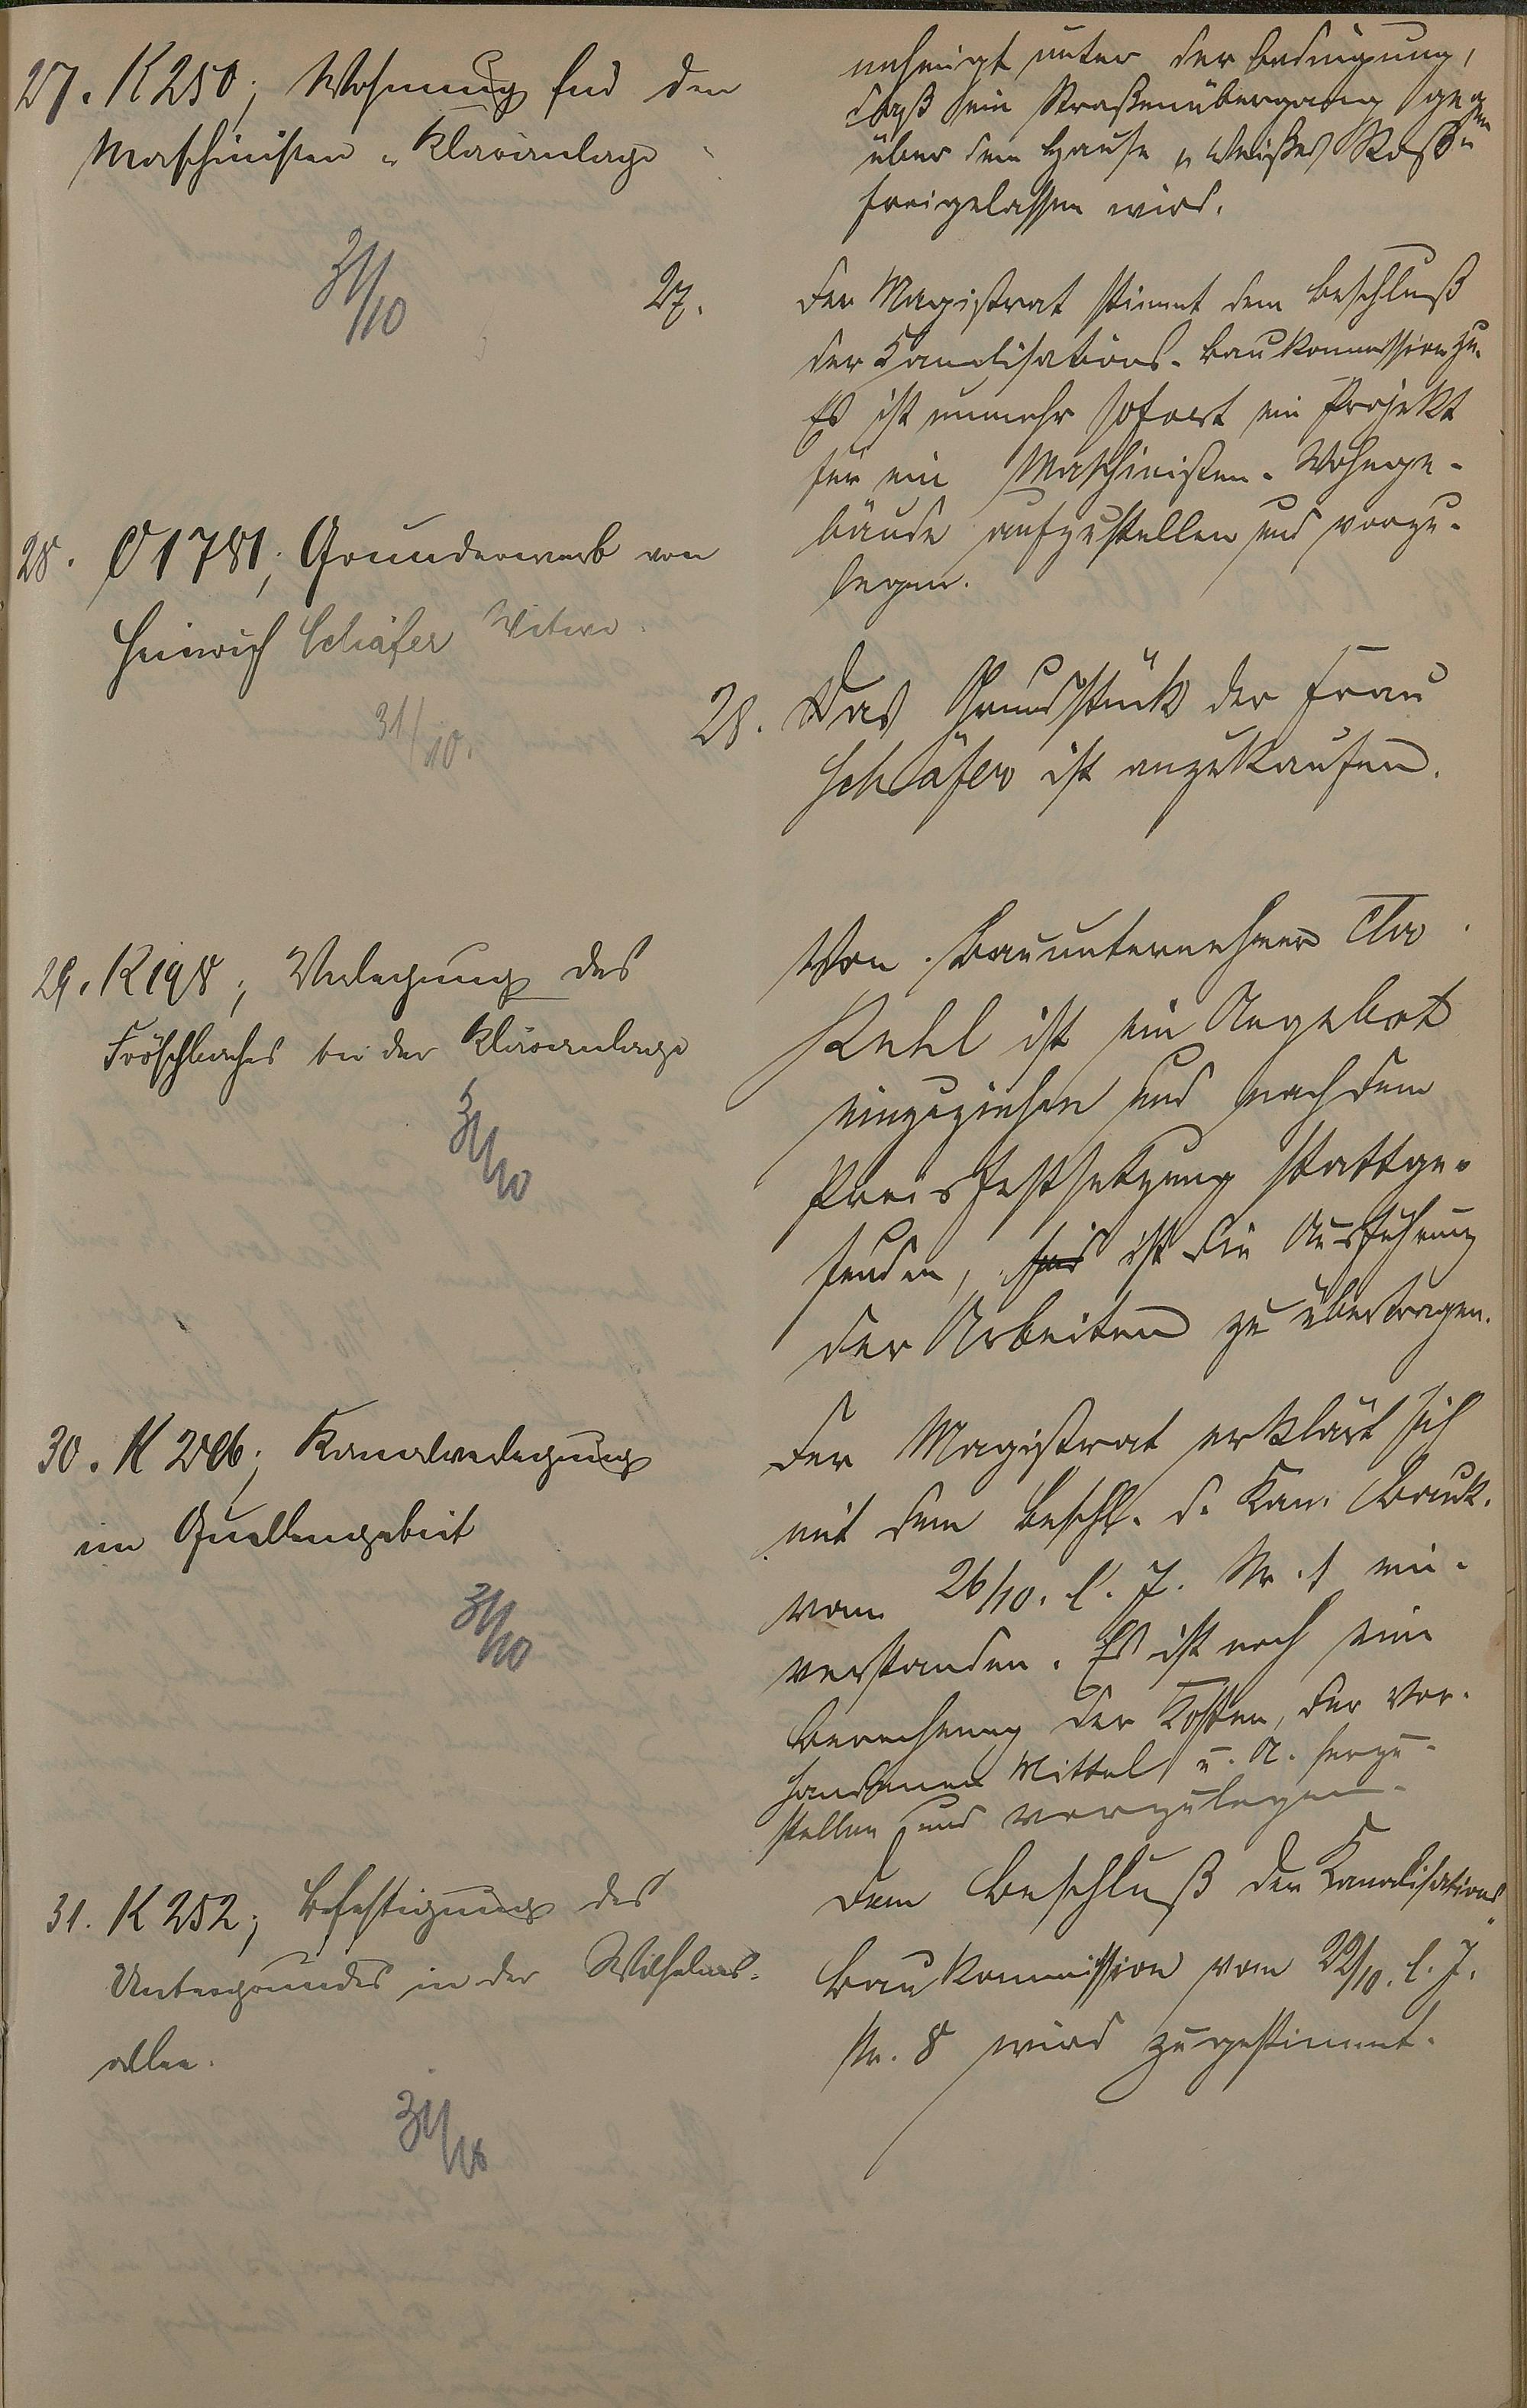 nehmigt unter der Bedingung,
daß ein Straßenübergang gegen
über dem Hause "Weißes Roß"
freigelassen wird.
27. K 250; Wohnung für den
Maschinisten - Kläranlage
31/10
27. Der Magistrat stimmt dem Beschluß
der Kanalisations-Baukommission zu.
Es ist nunmehr sofort ein Projekt
für ein Maschinisten-Wohnge-
bäude aufzustellen und vorzu-
legen.
28. O 1781; Grunderwerb von
Heinrich Schäfer Witwe.
31/10.
28. Das Grundstück der Frau
Schäfer ist anzukaufen.
29. K 198; Verlegung des
Fröschbaches bei der Kläranlage
31/10
Von Bauunternehmer
Kehl ist ein Angebot
einzuziehen und nachdem
Preisfestsetzung stattge-
funden, ist die Ausführung
der Arbeiten zu übertragen.
30. K 246; Kanalverlegung
im Quellengebiet
31/10
Der Magistrat erklärt sich
mit dem Beschl. d. Kan. Bauk.
vom 26/10. l. J. Nr. 1 ein-
verstanden. Es ist noch eine
Berechnung der Kosten, der vor-
handenen Mittel u. A. herzu-
stellen und vorzulegen.
31. K 252; Befestigung des
Untergrundes in der Wilhelms-
allee.
31/10
Dem Beschluß der Kanalisations-
Baukommission vom 22/10. l. J.
Nr. 8 wird zugestimmt.